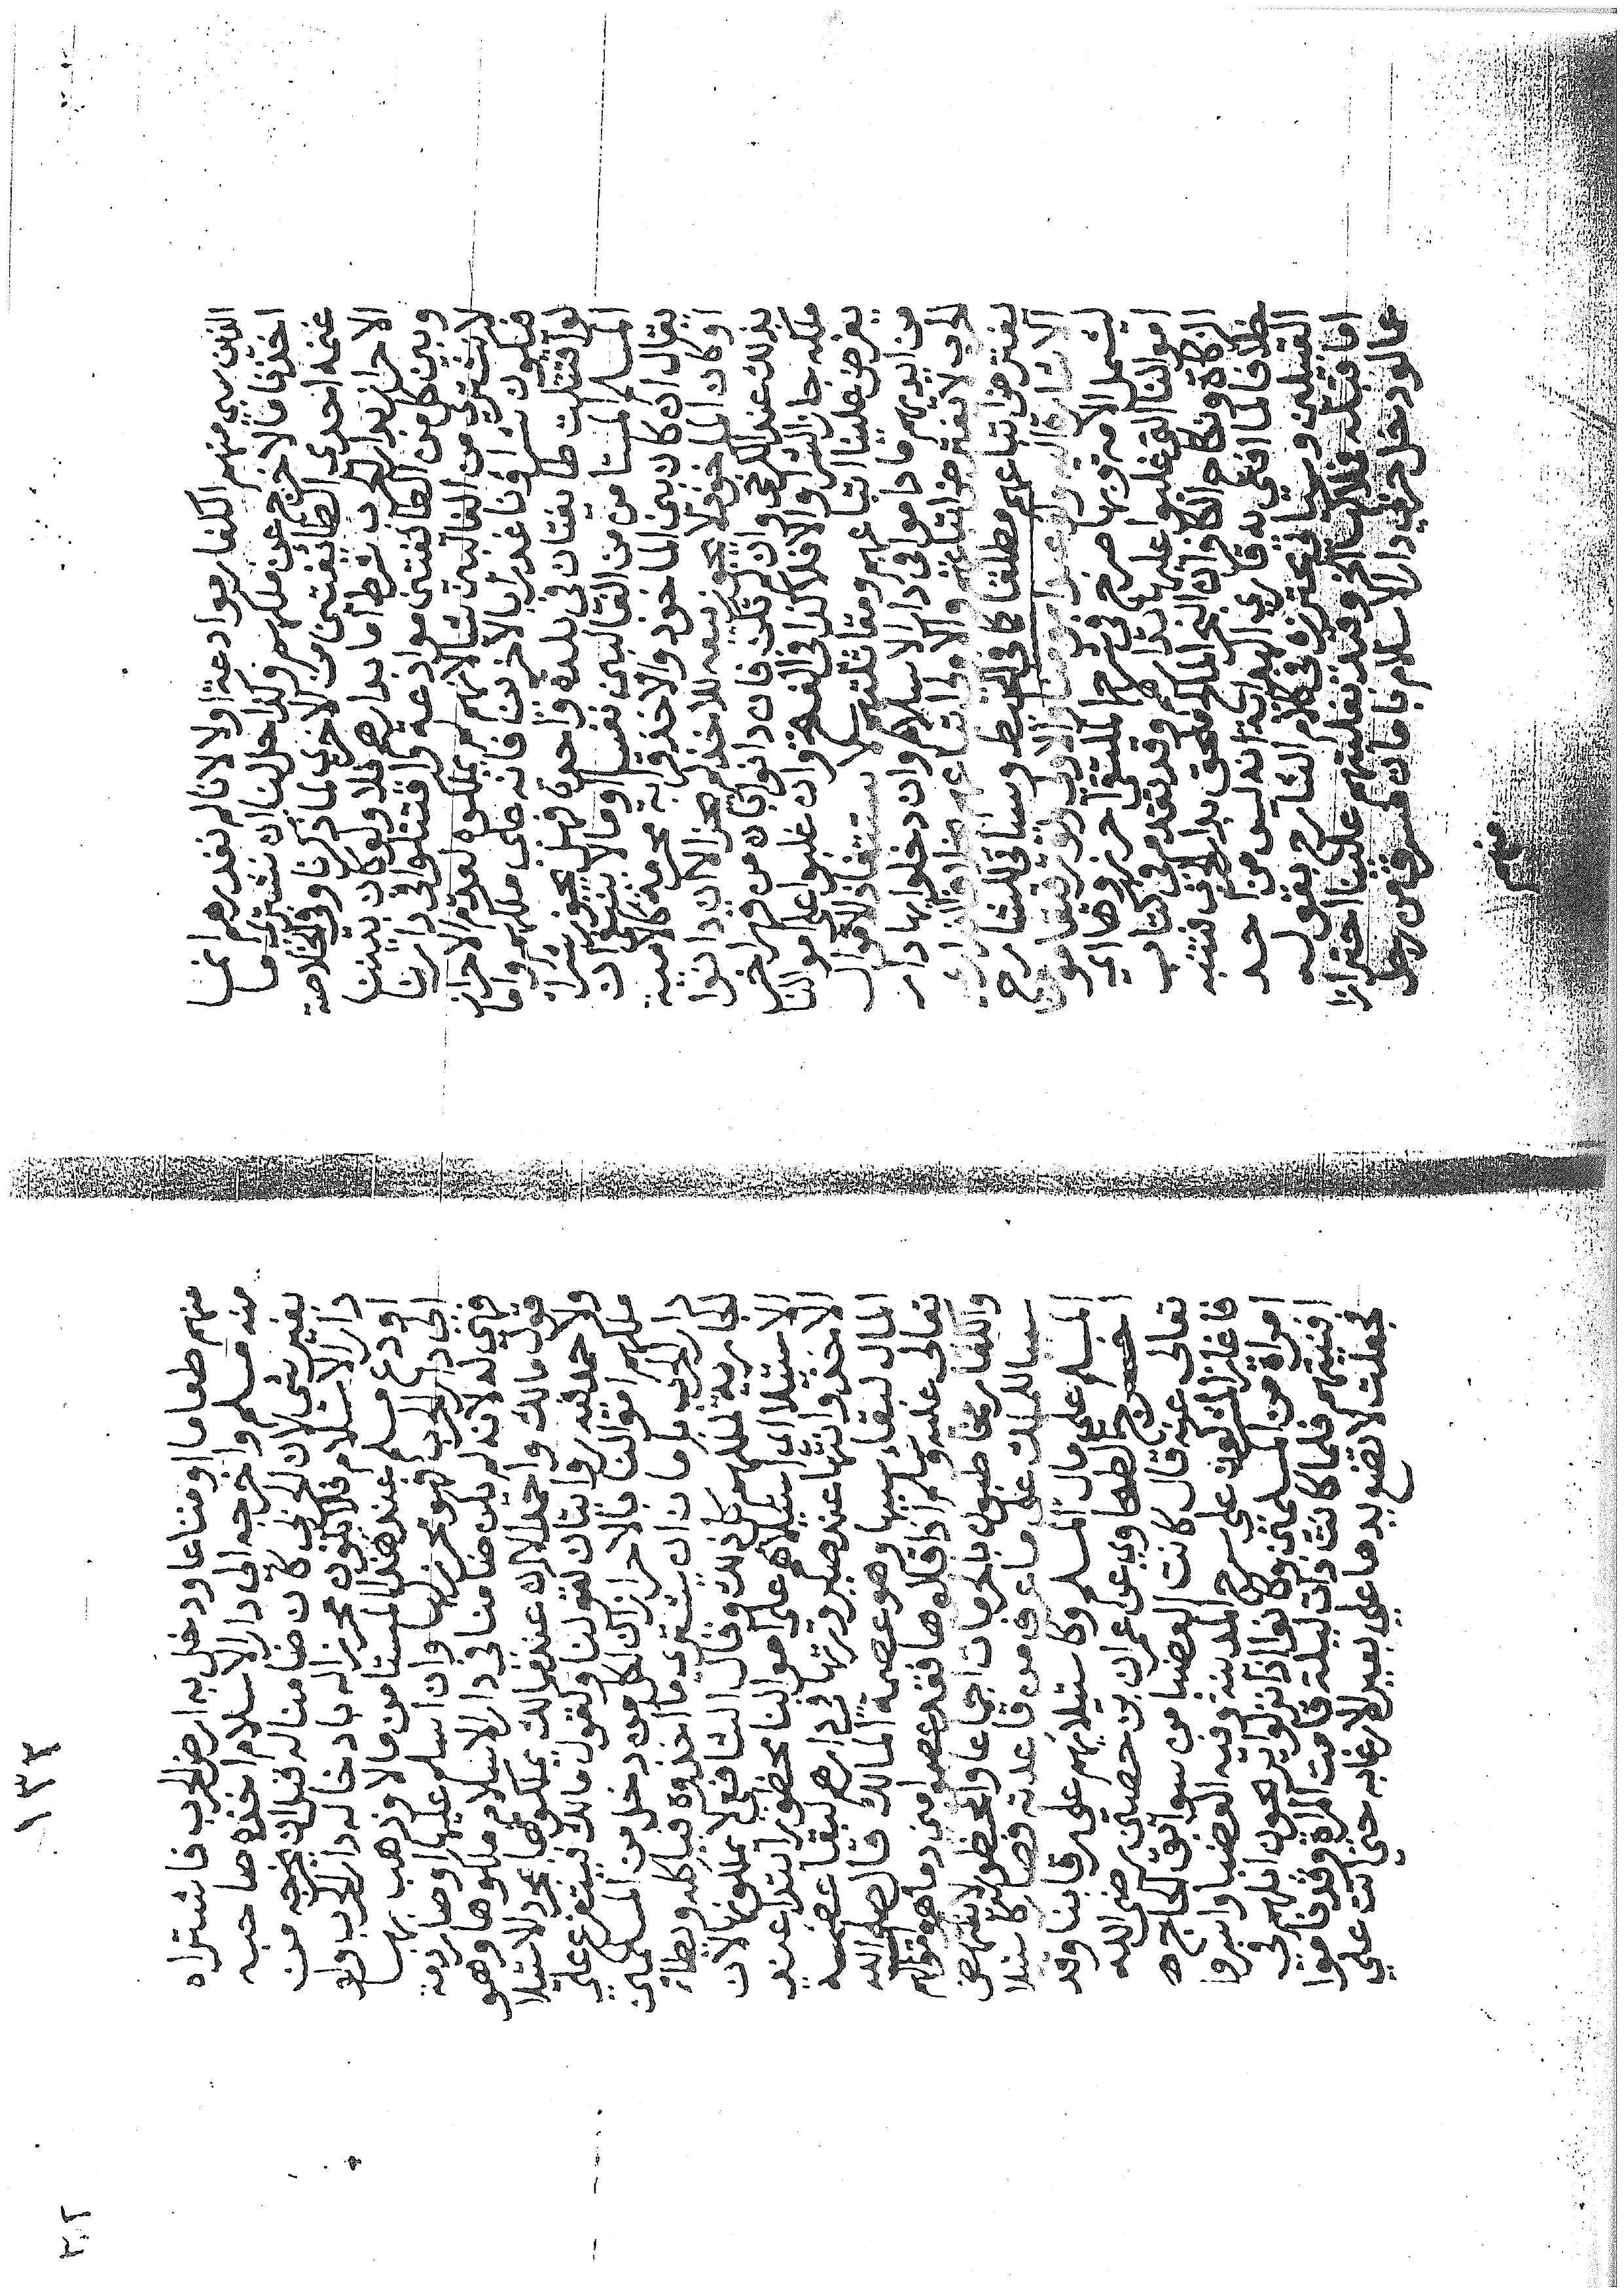 الذين سبي منهم الكفار موادعة اولا لانا لم نغدرهم انما
اخذنا مالا خرج عن ملكهم وكذا حل لنا ان نشتري ما
غنمه احدى الطائفتين من الاخرى لما ذكرنا وفي الخلاصة
الاحراز بدار الحرب شرط اما بدارهم فلا ولو كان بيننا
وبين كل من الطائفتين موادعة واقتتلوا في دارنا
لا نشتري من الغالبين شيا لانهم لم يملكوه لعدم الاحراز
فيكون شراؤنا غدرا بالاخرين فانه على ملكهم واما
لو اقتتلت طائفتان في بلدة واحدة فهل يجوز شراء
المسلم المستامن من الغالبين نفسا او مالا ينبغي ان
يقال ان كان بين الماخوذ والاخذ قرابة محرمية كالامية
او كان الماخوذ لا يجوز بيعه للاخذ لم يجز الا ان دانوا
بذلك عند الكرخي وان لم تكن فان دانوا بان من قهر اخر
ملكه جاز الشراء والا فلا كذا في الفتح وان غلبوا على اموالنا
يفرض علينا اتباعهم ومقاتلتهم لاستنقاذ الاموال
من ايديهم ما داموا في دار الاسلام وان دخلوا بها دار
الحرب لا يفترض اتباعهم والاولى اتباعهم بخلاف الذراري
يفترض اتباعهم مطلقا كما في المحيط وسياتي للشارح
الاشارة اليه ولو عبدا مومنا
يشمل الامة وبها صرح في شرح الملتقى احرزوها اي
اموالنا التي غلبوا عليها بدارهم وقد تقدم في كتاب
الزكاة ونكاح الكافر ان البحر الملح ملحق بدار الحرب فتنبه
خلافا لما افتى به قاري الهداية انه ليس من احد
القبيلين وسياتي محترزه في كلام الشارح بقوله
اما قبله فلا الخ وقيد بغلبتهم علينا احترازا
عما لو دخل حربي دار الاسلام بامان فسرق من رجل
منهم
١٣٣
منهم طعاما او متاعا ودخل به ارض الحرب فاشتراه
منه مسلم واخرجه الى دار الاسلام اخذه صاحبه
بغير شي لان الحربي كان ضامنا له قبل ان يخرجه من
دار الاسلام فلا يكون محرزا له بادخاله دار الحرب ولو
اودع مسلم عند هذا المستامن مالا وذهب بها
الى دار الحرب فهو محرز لها وان اسلم عليها او صار ذمة
فهي له لانه لم يكن ضامنا في دار الاسلام ملكوها وهو
قول مالك واحمد الا ان عند مالك يملكوها بمجرد الاستيلا
ولاحمد فيه روايتان كقولنا وكقول مالك فيتفرع على
ملكهم اموالنا بالاحراز ان لكل من دخل من المسلمين
دار الحرب بامان ان يشتري ما اخذوه فياكله ويطا
الجارية لملكهم كل ذلك وقال الشافعي لا يملكونها لان
الاستيلا اي استيلاهم على اموالنا محظور ابتدا عند
الاخذ وانتها عند صيرورتها في دارهم لبقا عصمة
المال لبقاء سببها وهو عصمة المالك قال صلى الله
تعالى عليه وسلم اذا قالوها فقد عصموا مني دماهم واموالهم
والكفار مخاطبون بالحرمات اجماعا والمحظور لا ينتهض
سببا للملك على ما عرف من قاعدته فصار كاستيلا
المسلم على مال المسلم وكاستيلايهم على رقابنا وقد
اخرج الطحاوي عن عمران بن حصين رضي الله
تعالى عنه قال كانت العضبا من سوابق الحاج
فاغار المشركون على سرح المدينة وفيه العضبا واسروا
امراة من المسلمين وكانوا اذا نزلوا يريحون ابلهم في
افنيتهم فلما كانت ذات ليلة قامت المراة وقد ناموا
فجعلت لا تضع يدها على بعير الا رغا حتى اتت على